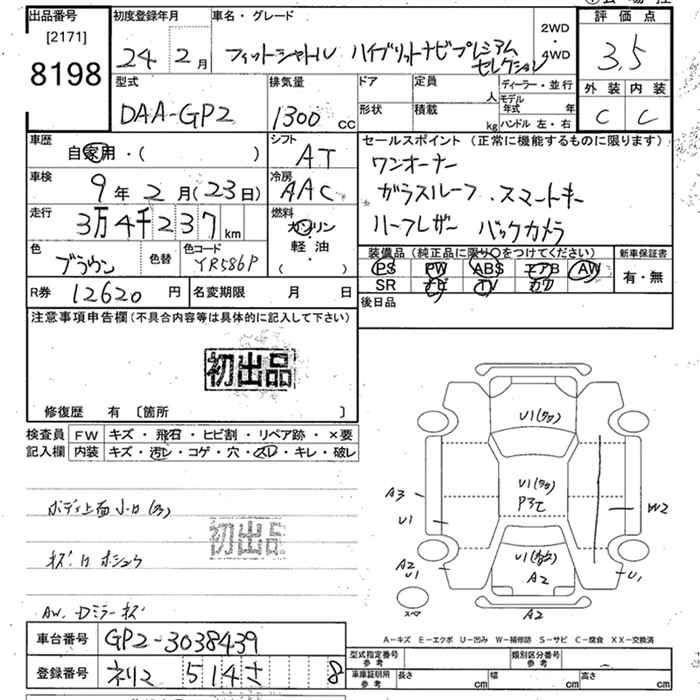 出品番号 [2171] 8198
初度登録年月 24年 2月
車名・グレード フィットシャトル ハイブリットナビプレミアムセレクション
2WD・4WD
評価点 3.5
外装 C 内装 C
型式 DAA-GP2
排気量 1300 cc
ドア 形状
定員 人
積載 kg
ディーラー・並行
モデル年式 年
ハンドル 左・右
車歴 自家用・( )
シフト AT
車検 9年 2月 (23日)
冷房 AAC
走行 3万4千237 km
燃料 ガソリン 軽油・( )
色 ブラウン 色替
色コード YR586P
R券 12620 円
名変期限 月 日
セールスポイント (正常に機能するものに限ります)
ワンオーナー
ガラスルーフ . スマートキー
ハーフレザー バックカメラ
装備品 (純正品に限り○をつけてください)
PS PW ABS エアB AW
SR ナビ TV カワ
新車保証書 有・無
後日品
注意事項申告欄 (不具合内容等は具体的に記入して下さい)
初出品
修復歴 有 〔箇所 〕
検査員記入欄
FW キズ・飛石・ヒビ割・リペア跡・×要
内装 キズ・汚レ・コゲ・穴・スレ・キレ・破レ
初出品
AW. Dミラーキズ
U1(タタ)
U1(タタ)
A3
U1
W2
A2
U1
U1
A2
スペア
A2
A-キズ E-エクボ U-凹み W-補修跡 S-サビ C-腐食 XX-交換済
車台番号 GP2-3038439
登録番号 ネリマ 514 さ 8
型式指定番号 参考
類別区分番号 参考
車庫証明 参考 長さ cm 幅 cm 高さ cm